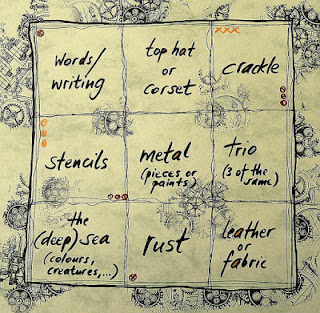 words/
writing
top hat
or
corset
crackle
stencils
metal
(pieces or
paints)
trio
(3 of the
same)
the
(deep) sea
(colours,
creatures,...)
rust
leather
or
fabric